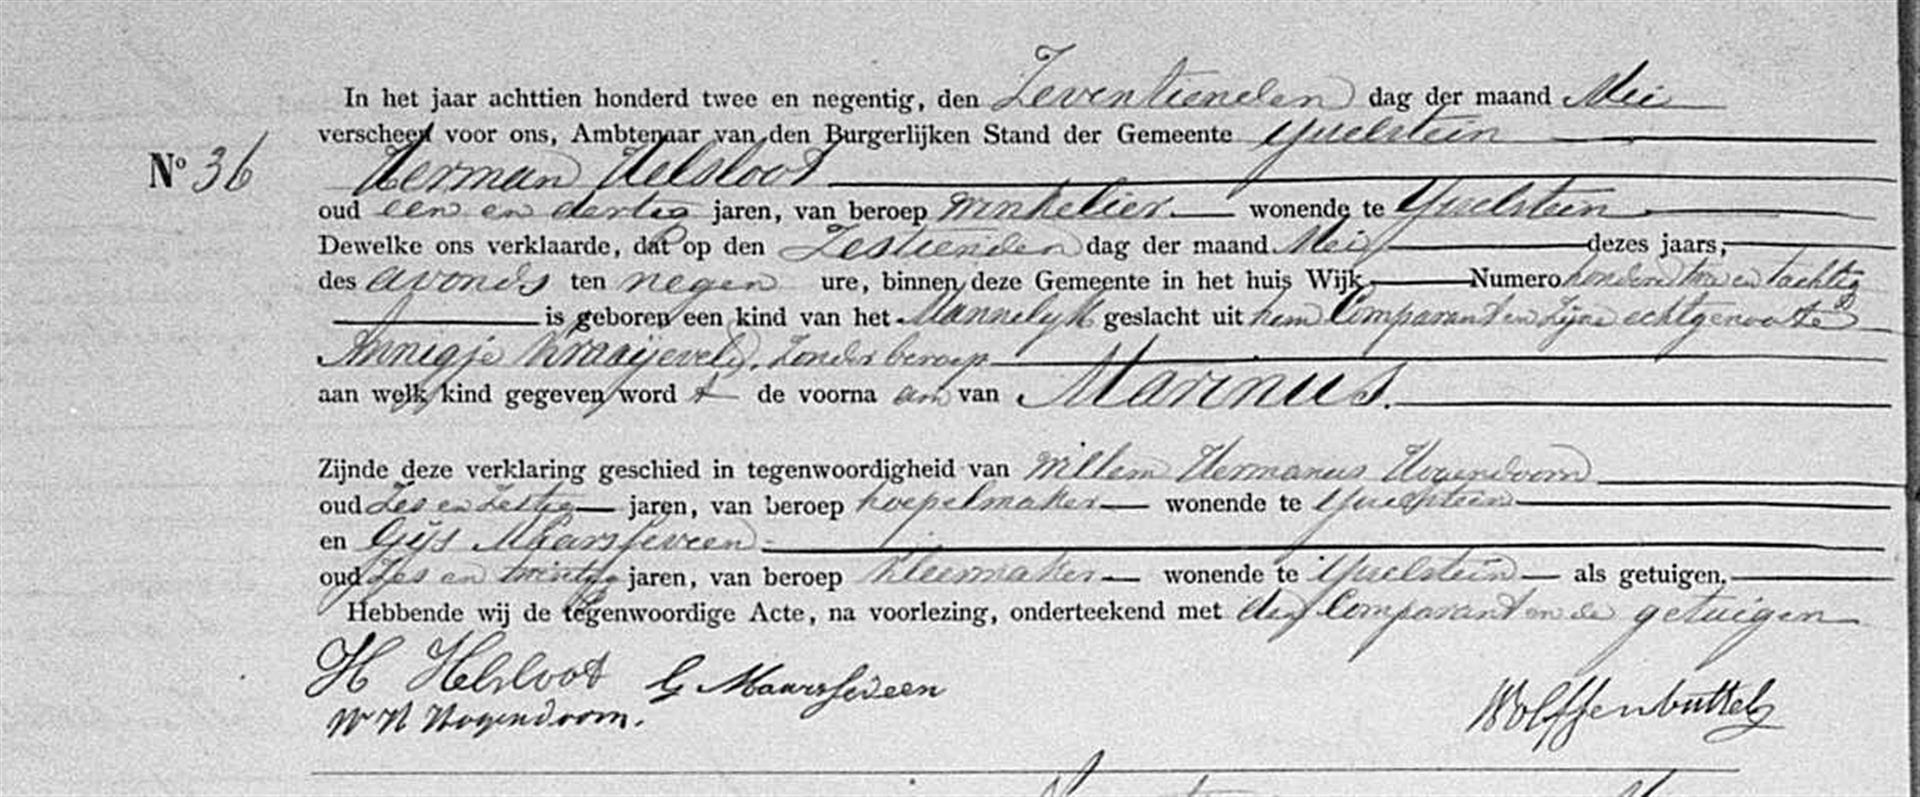 In het jaar achttien honderd twee en negentig, den Zeventienden dag der maand Mei
verscheen voor ons, Ambtenaar van den Burgerlijken Stand der Gemeente IJsselstein
No 36
Herman Helsloot
oud een en dertig jaren, van beroep winkelier wonende te IJsselstein
Dewelke ons verklaarde, dat op den Zestienden dag der maand Mei dezes jaars,
des avonds ten negen ure, binnen deze Gemeente in het huis Wijk Numero honderd twee en tachtig
is geboren een kind van het Mannelijk geslacht uit hem Comparant en zijne echtgenoote
Annigje Kraaijeveld, zonder beroep
aan welk kind gegeven word t de voorna am van Marinus.
Zijnde deze verklaring geschied in tegenwoordigheid van Willem Hermanus Hogendoorn
oud Zes en Zestig jaren, van beroep hoepelmaker wonende te IJsselstein
en Gijs Maarsseveen
oud Zes en twintig jaren, van beroep kleermaker wonende te IJsselstein als getuigen.
Hebbende wij de tegenwoordige Acte, na voorlezing, onderteekend met den Comparant en de getuigen
H Helsloot G Maarsseveen
W H Hogendoorn. Wolffenbuttel